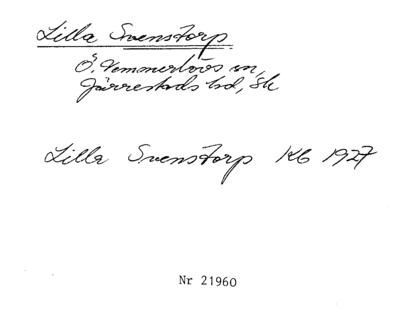 Lilla Svenstorp
Ö. Vemmerlövs sn,
Järrestads hd, Sk
Lilla Svenstorp KB 1927
Nr 21960